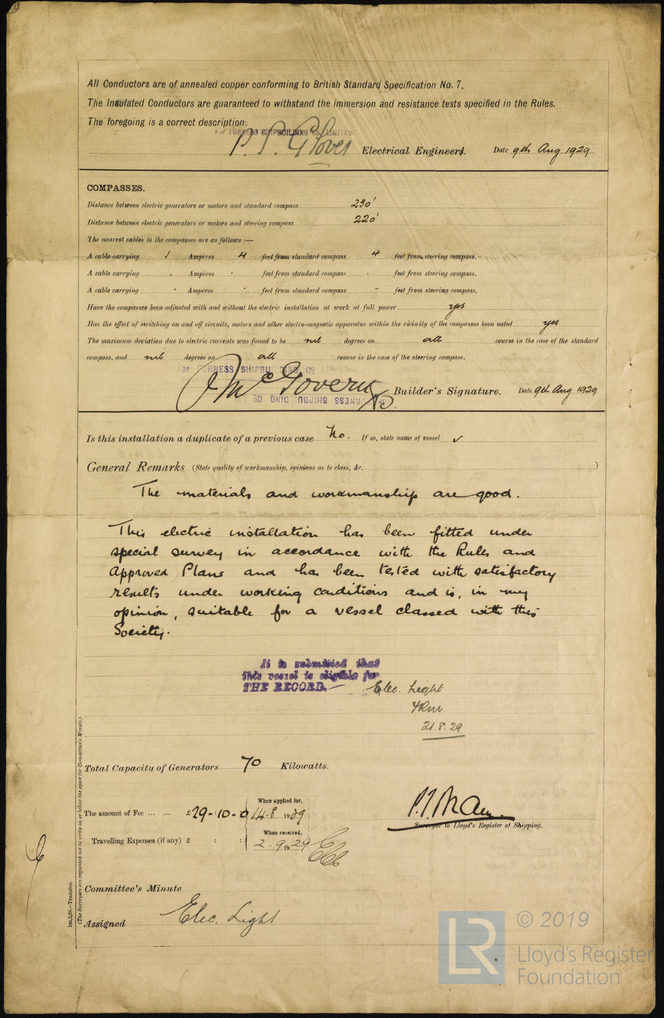 All Conductors are of annealed copper conforming to British Standard Specification No. 7.
The Insulated Conductors are guaranteed to withstand the immersion and resistance tests specified in the Rules.
The foregoing is a correct description.
FURNESS SHIPBUILDING CO. LIMITED
P. P. Glover Electrical Engineers. Date 9th Aug 1929
COMPASSES.
Distance between electric generators or motors and standard compass 230'
Distance between electric generators or motors and steering compass 220'
The nearest cables to the compasses are as follows :—
A cable carrying 1 Ampères 4 feet from standard compass 4 feet from steering compass.
A cable carrying " Ampères " feet from standard compass " feet from steering compass.
A cable carrying " Ampères " feet from standard compass " feet from steering compass.
Have the compasses been adjusted with and without the electric installation at work at full power yes
Has the effect of switching on and off circuits, motors and other electro-magnetic apparatus within the vicinity of the compasses been noted yes
The maximum deviation due to electric currents was found to be nil degrees on all course in the case of the standard
compass, and nil degrees on all course in the case of the steering compass.
For FURNESS SHIPBUILDING CO
J McGovern Builder's Signature. Date 9th Aug 1929
FURNESS SHIPBUILDING CO
Is this installation a duplicate of a previous case No. If so, state name of vessel ✓
General Remarks (State quality of workmanship, opinions as to class, &c. )
The materials and workmanship are good.
This electric installation has been fitted under
special survey in accordance with the Rules and
Approved Plans and has been tested with satisfactory
results under working conditions and is, in my
opinion, suitable for a vessel classed with this
Society.
It is submitted that
this vessel is eligible for
THE RECORD. Elec. Light
21.8.29
Total Capacity of Generators 70 Kilowatts.
The amount of Fee ... ... £29-10-0 When applied for, 14.8.1929
Travelling Expenses (if any) £ : : When received, 2.9.1929
Surveyor to Lloyd's Register of Shipping.
Committee's Minute
Assigned Elec. Light
(The Surveyors are requested not to write on or below the space for Committee's Minute.)
© 2019
LR Lloyd's Register
Foundation